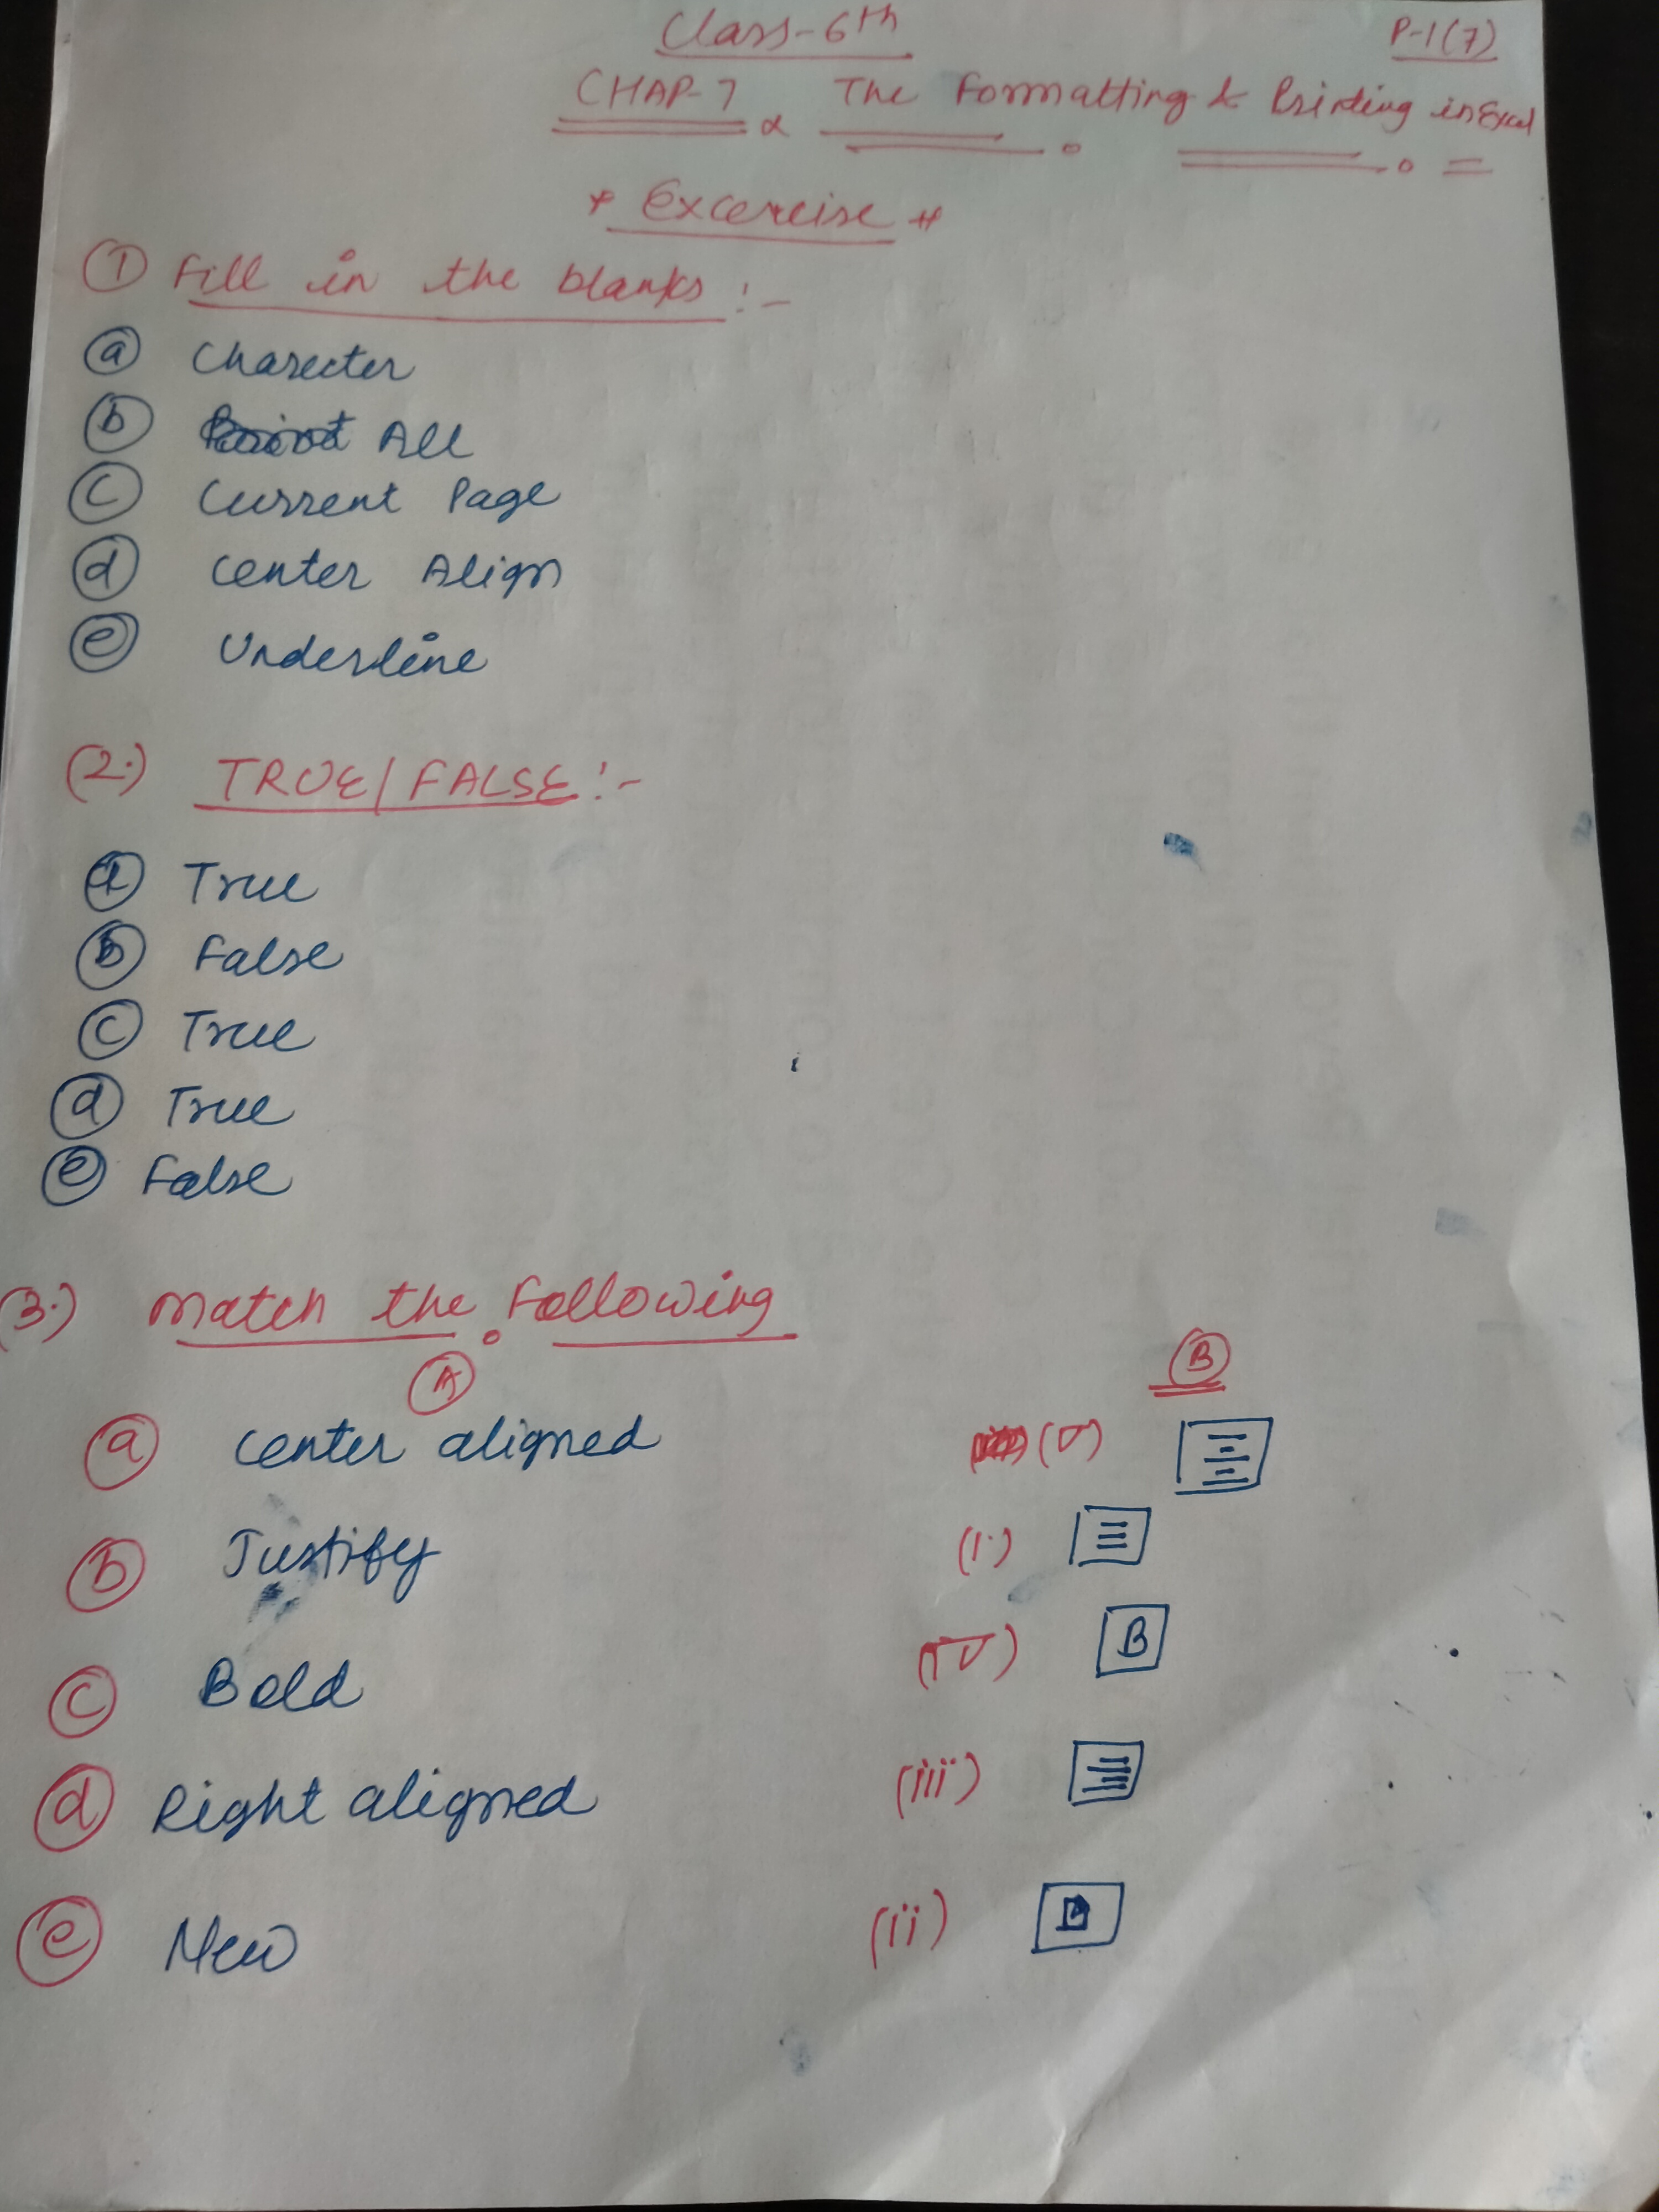 Class-6th
P-1(7)
CHAP-7 The Formatting & Printing in Excel
* Excercise *
① Fill in the blanks :-
ⓐ Charecter
ⓑ All
ⓒ Current Page
ⓓ Center Align
ⓔ Underline
(2.) TRUE/FALSE :-
ⓐ True
ⓑ False
ⓒ True
ⓓ True
ⓔ False
(3.) Match the Following
Ⓐ Ⓑ
ⓐ Center aligned (v)
ⓑ Justify (i.)
ⓒ Bold (iv) B
ⓓ Right aligned (iii)
ⓔ New (ii)